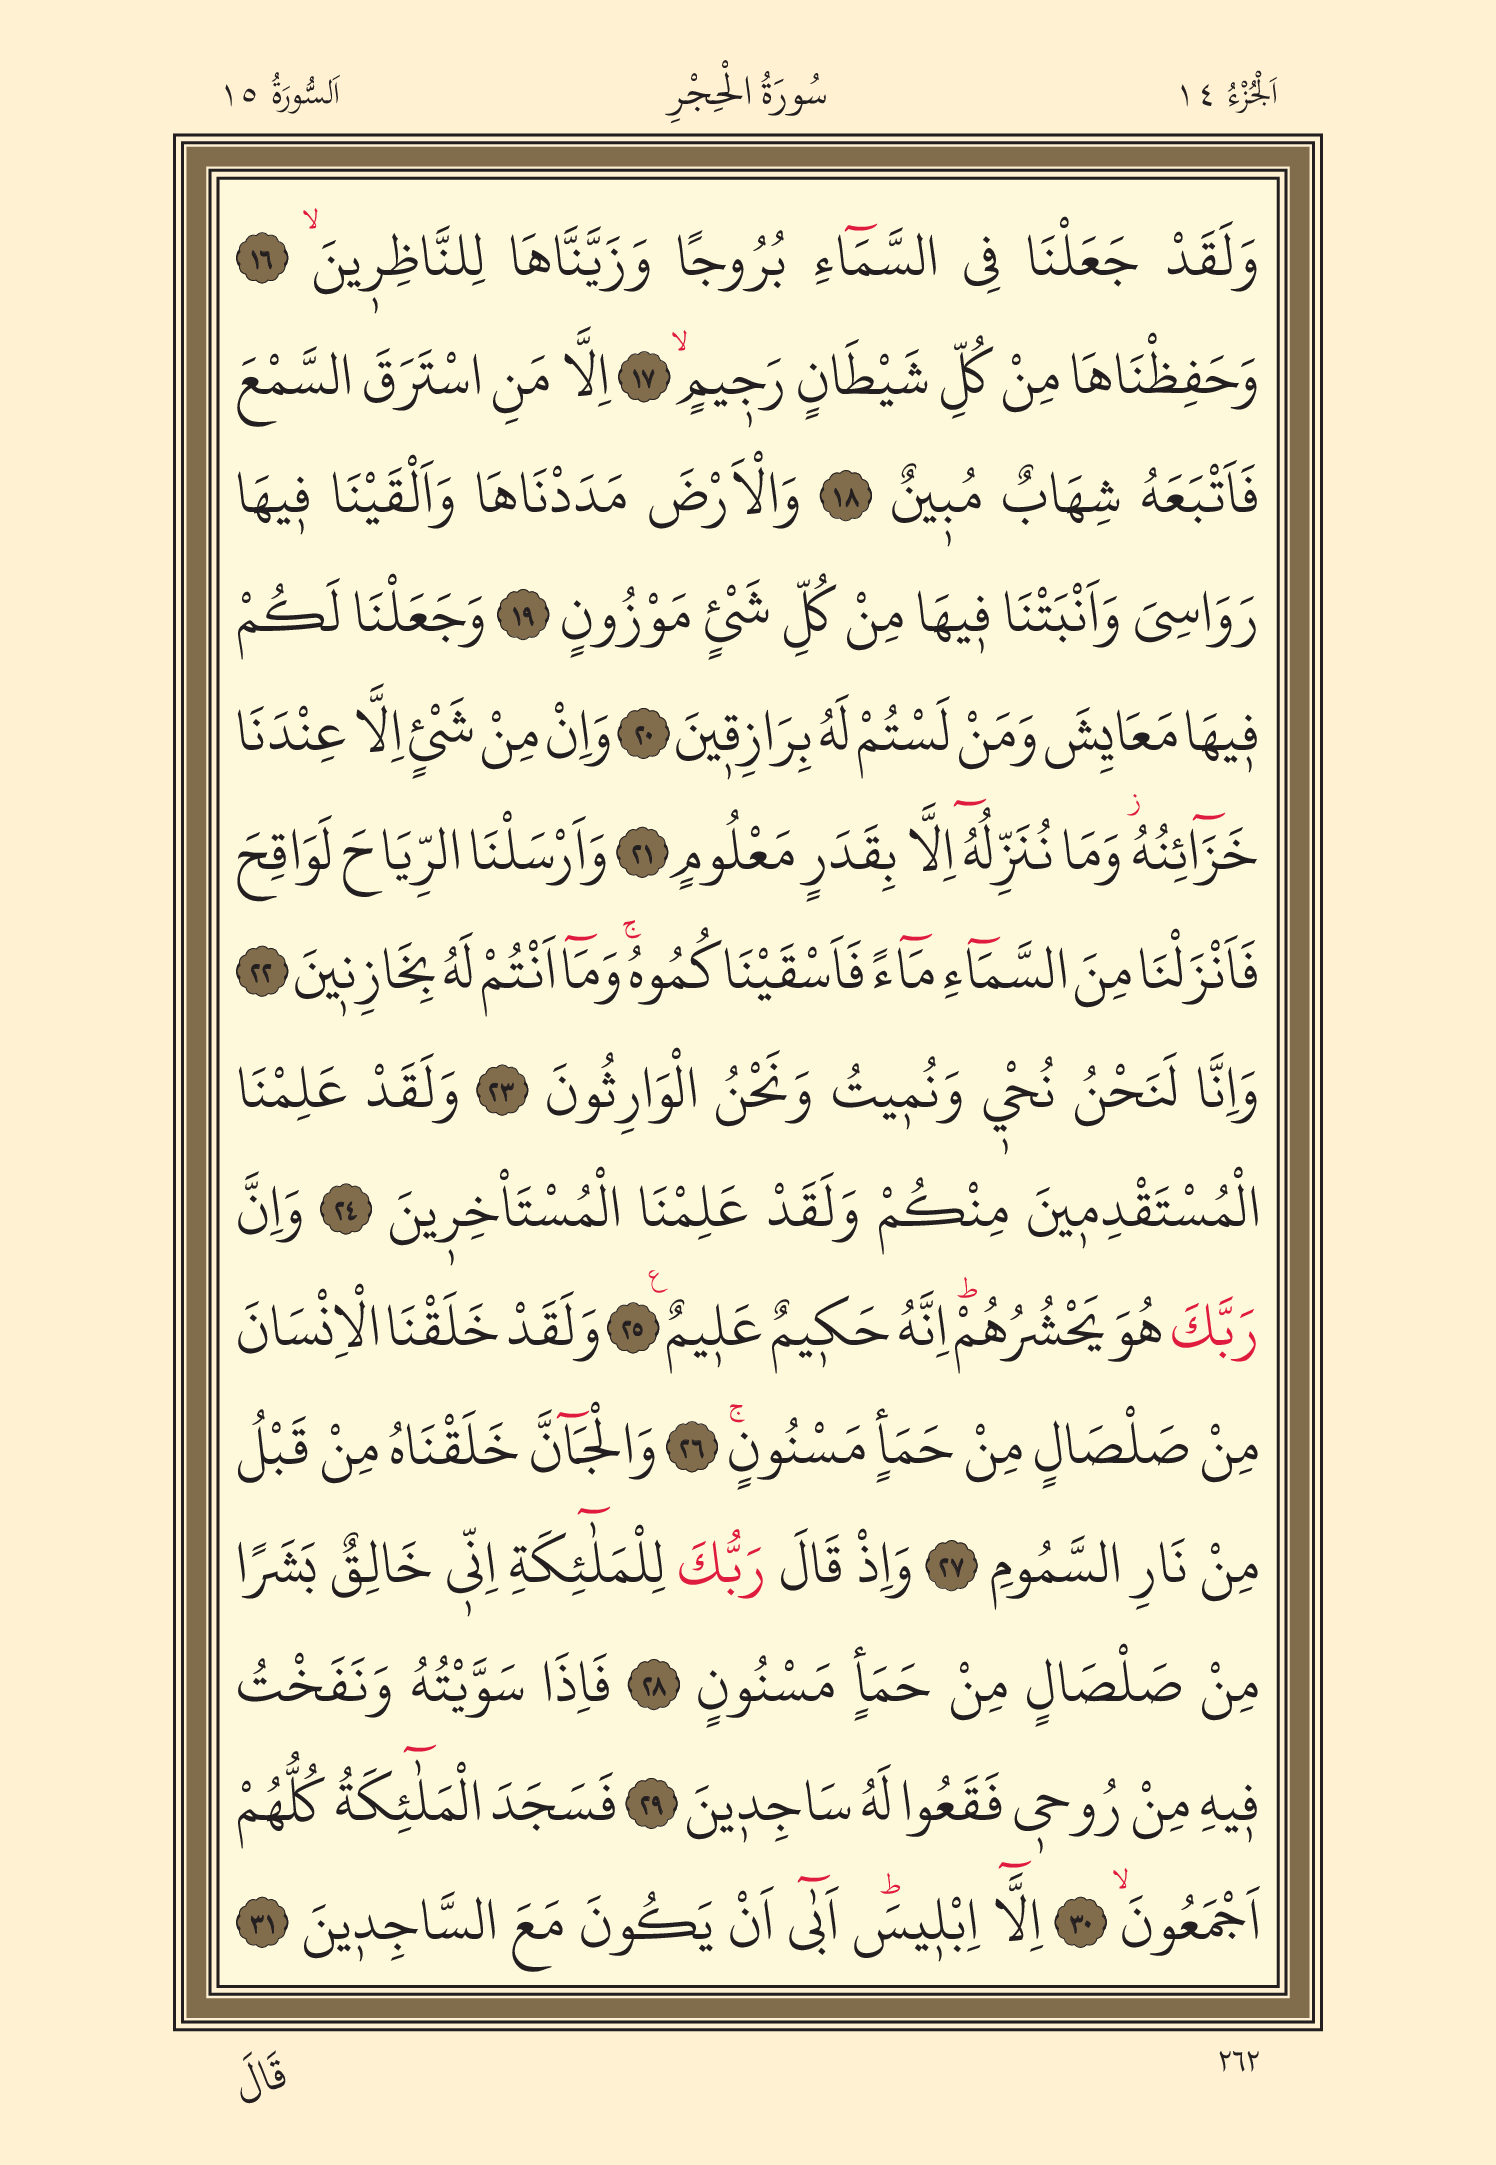 اَلْجُزْءُ ١٤ سُورَةُ الْحِجْرِ اَلسُّورَةُ ١٥
وَلَقَدْ جَعَلْنَا فِى السَّمَٓاءِ بُرُوجًا وَزَيَّنَّاهَا لِلنَّاظِر۪ينَۙ ﴿١٦﴾
وَحَفِظْنَاهَا مِنْ كُلِّ شَيْطَانٍ رَج۪يمٍۙ ﴿١٧﴾ اِلَّا مَنِ اسْتَرَقَ السَّمْعَ
فَاَتْبَعَهُ شِهَابٌ مُب۪ينٌ ﴿١٨﴾ وَالْاَرْضَ مَدَدْنَاهَا وَاَلْقَيْنَا ف۪يهَا
رَوَاسِىَ وَاَنْبَتْنَا ف۪يهَا مِنْ كُلِّ شَيْئٍ مَوْزُونٍ ﴿١٩﴾ وَجَعَلْنَا لَكُمْ
ف۪يهَا مَعَايِشَ وَمَنْ لَسْتُمْ لَهُ بِرَازِق۪ينَ ﴿٢٠﴾ وَاِنْ مِنْ شَيْئٍ اِلَّا عِنْدَنَا
خَزَٓائِنُهُؗ وَمَا نُنَزِّلُهُٓ اِلَّا بِقَدَرٍ مَعْلُومٍ ﴿٢١﴾ وَاَرْسَلْنَا الرِّيَاحَ لَوَاقِحَ
فَاَنْزَلْنَا مِنَ السَّمَٓاءِ مَٓاءً فَاَسْقَيْنَاكُمُوهُۚ وَمَٓا اَنْتُمْ لَهُ بِخَازِن۪ينَ ﴿٢٢﴾
وَاِنَّا لَنَحْنُ نُحْي۪ وَنُم۪يتُ وَنَحْنُ الْوَارِثُونَ ﴿٢٣﴾ وَلَقَدْ عَلِمْنَا
الْمُسْتَقْدِم۪ينَ مِنْكُمْ وَلَقَدْ عَلِمْنَا الْمُسْتَاْخِر۪ينَ ﴿٢٤﴾ وَاِنَّ
رَبَّكَ هُوَ يَحْشُرُهُمْۜ اِنَّهُ حَك۪يمٌ عَل۪يمٌ۟ ﴿٢٥﴾ وَلَقَدْ خَلَقْنَا الْاِنْسَانَ
مِنْ صَلْصَالٍ مِنْ حَمَأٍ مَسْنُونٍۚ ﴿٢٦﴾ وَالْجَٓانَّ خَلَقْنَاهُ مِنْ قَبْلُ
مِنْ نَارِ السَّمُومِ ﴿٢٧﴾ وَاِذْ قَالَ رَبُّكَ لِلْمَلٰٓئِكَةِ اِنّ۪ى خَالِقٌ بَشَرًا
مِنْ صَلْصَالٍ مِنْ حَمَأٍ مَسْنُونٍ ﴿٢٨﴾ فَاِذَا سَوَّيْتُهُ وَنَفَخْتُ
ف۪يهِ مِنْ رُوح۪ى فَقَعُوا لَهُ سَاجِد۪ينَ ﴿٢٩﴾ فَسَجَدَ الْمَلٰٓئِكَةُ كُلُّهُمْ
اَجْمَعُونَۙ ﴿٣٠﴾ اِلَّٓا اِبْل۪يسَۜ اَبٰٓى اَنْ يَكُونَ مَعَ السَّاجِد۪ينَ ﴿٣١﴾
٢٦٢ قَالَ